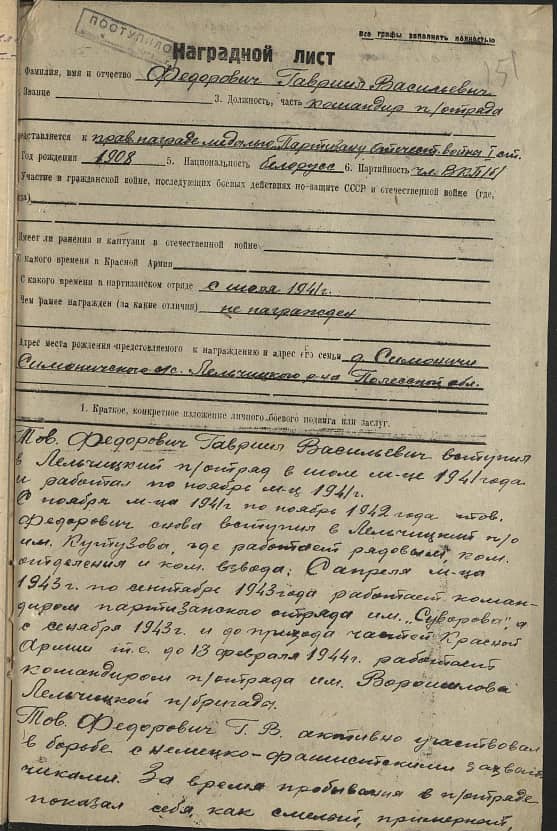 Все графы заполнять полностью
ПОСТУПИЛО
Наградной лист
Фамилия, имя и отчество Федорович Гавриил Васильевич
Звание 3. Должность, часть командир п/отряда
едставляется к прав. награде медалью „Партизану отечест. войны I ст.
Год рождения 1908 5. Национальность белорусс 6. Партийность чл. ВКП/б/
Участие в гражданской войне, последующих боевых действиях по-защите СССР и отечественной войне (где,
Имеет ли ранения и контузии в отечественной войне
С какого времени в Красной Армии
С какого времени в партизанском отряде с июля 1941г.
Чем ранее награжден (за какие отличия) не награжден
Адрес места рождения представляемого к награждению и адрес его семьи д. Симоничи
Симоничского с/с. Лельчицкого р-на Полесской обл.
1. Краткое, конкретное изложение личного боевого подвига или заслуг.
Тов. Федорович Гавриил Васильевич вступил
в Лельчицкий п/отряд в июле м-це 1941 года
и работал по ноябрь м-ц 1941г.
С ноября м-ца 1941г по ноябрь 1942 года тов.
Федорович снова вступил в Лельчицкий п/о
им. Кутузова, где работает рядовым, ком.
отделения и ком. взвода; С апреля м-ца
1943г. по сентябрь 1943 года работает коман-
диром партизанского отряда им. „Суворова", а
с сенября 1943г. и до прихода частей Красной
Армии т.е. до 13 февраля 1944г. работает
командиром п/отряда им. Ворошилова
Лельчицкой п/бригада.
Тов. Федорович Г. В. активно участвовал
в борьбе с немецко-фашистскими захват-
чиками. За время пробывания в п/отряде
показал себя, как смелый, примерный,